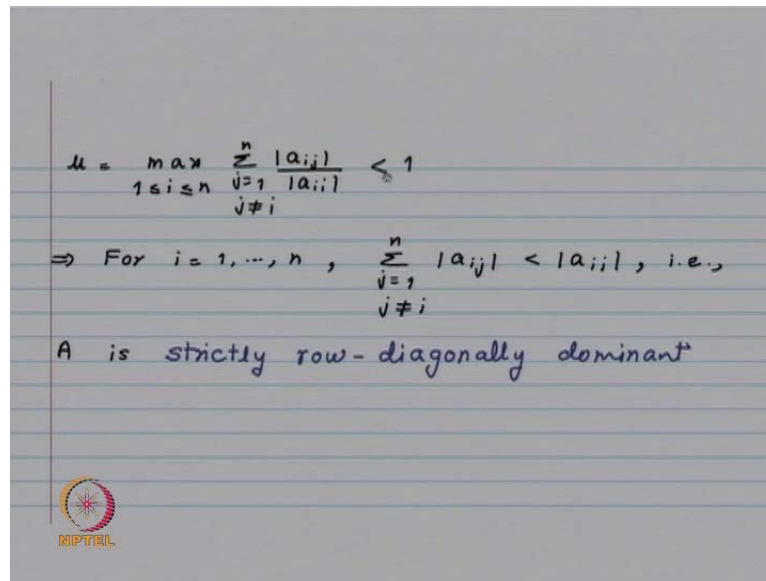 μ = max 1≤i≤n n Σ j=1 j≠i |aij| / |aii| < 1
⇒ For i = 1, ..., n , n Σ j=1 j≠i |aij| < |aii| , i.e.,
A is strictly row-diagonally dominant
NPTEL